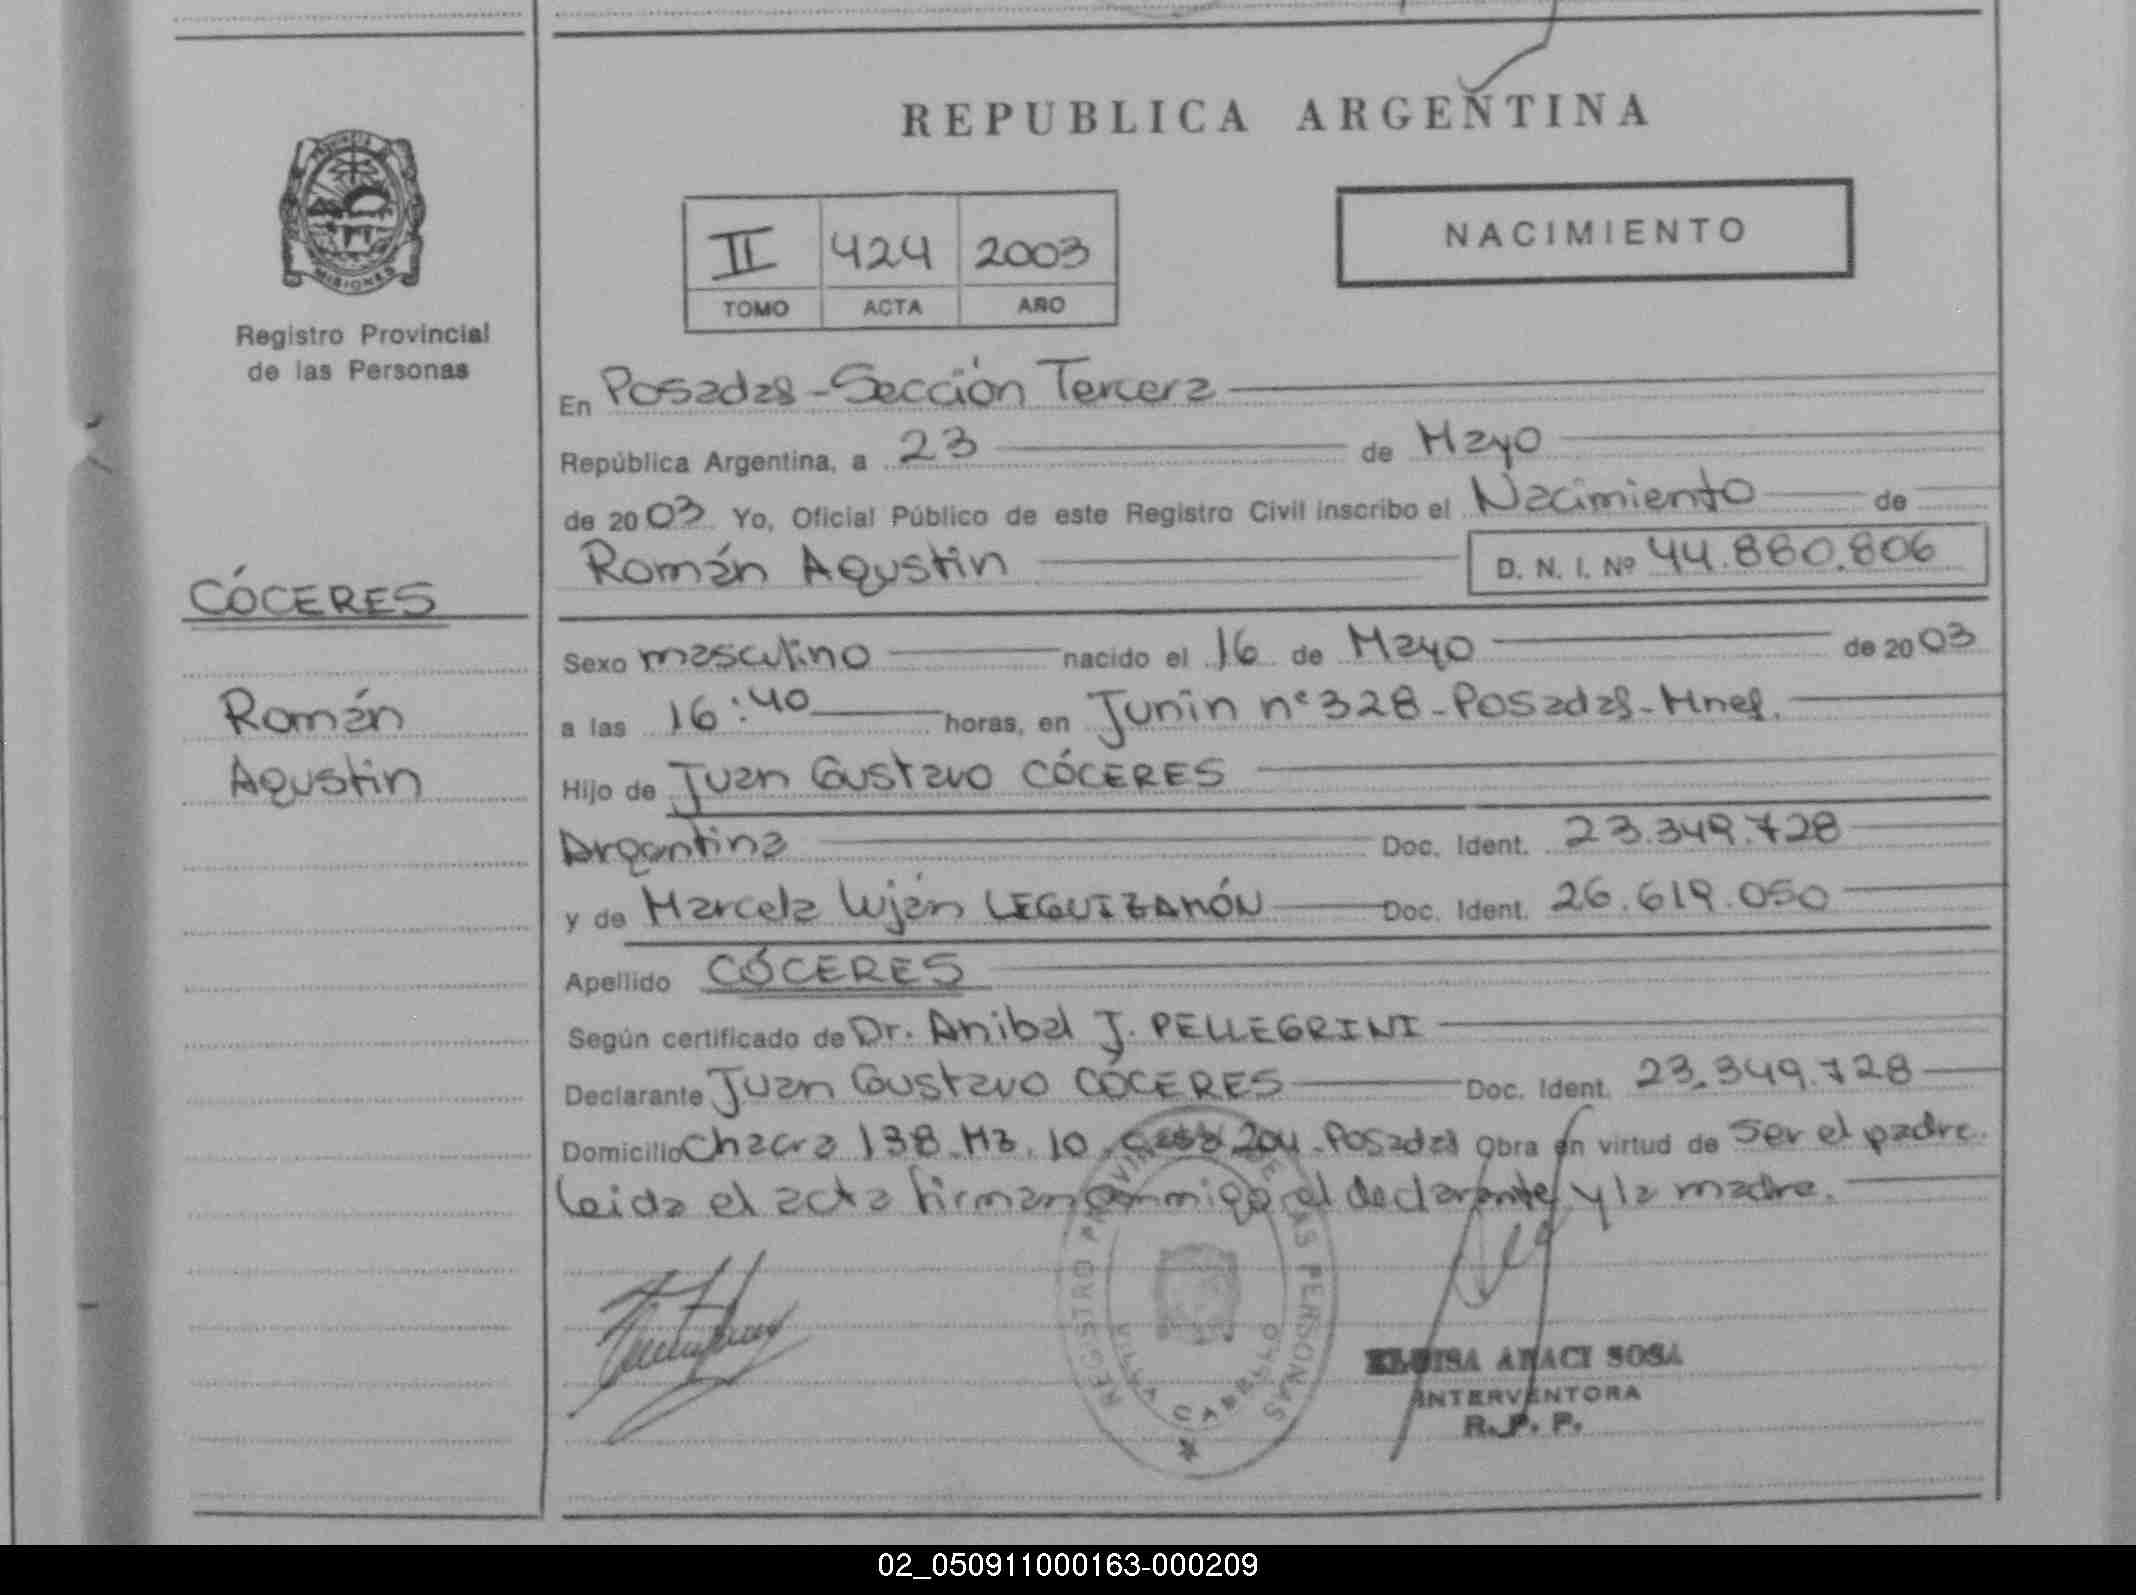 REPUBLICA ARGENTINA
NACIMIENTO
II 424 2003
TOMO ACTA AÑO
MISIONES
Registro Provincial
de las Personas
En Posadas - Sección Tercera
República Argentina, a 23 de Mayo
de 2003 Yo, Oficial Público de este Registro Civil inscribo el Nacimiento de
Román Agustin D. N. I. Nº 44.880.806
CÓCERES
Román
Agustin
Sexo masculino nacido el 16 de Mayo de 2003
a las 16:40 horas, en Junin nº 328 - Posadas - Mnes.
Hijo de Juan Gustavo CÓCERES
Argentina Doc. Ident. 23.349.728
y de Marcela Luján LEGUIZAMÓN Doc. Ident. 26.619.050
Apellido CÓCERES
Según certificado de Dr. Anibal J. PELLEGRINI
Declarante Juan Gustavo CÓCERES Doc. Ident. 23.349.728
Domicilio Chacra 138 - Mz. 10 Casa 204 - Posadas Obra en virtud de ser el padre.
Leida el acta firman conmigo el declarante y la madre.
REGISTRO PROVINCIAL DE LAS PERSONAS
VILLA CABELLO
ELOISA ARACI SOSA
INTERVENTORA
R. P. P.
02_050911000163-000209